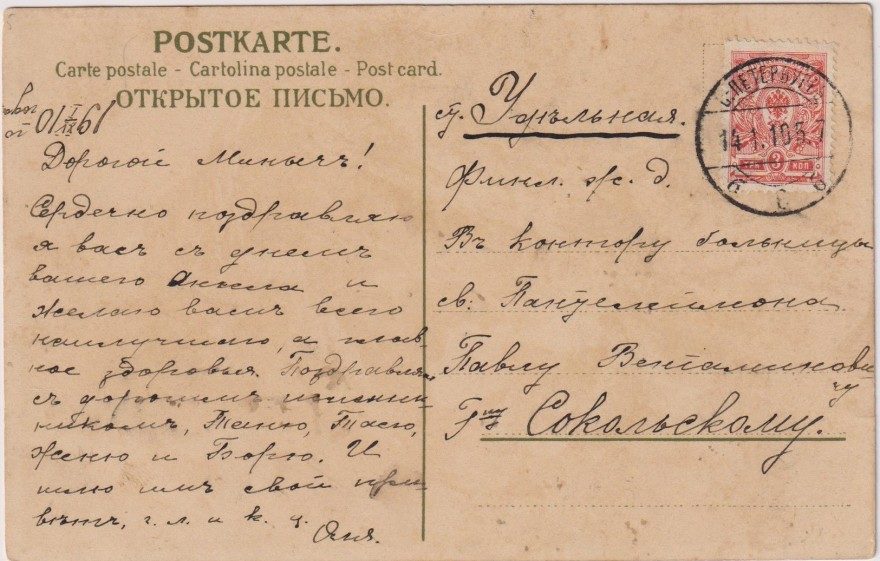 POSTKARTE.
Carte postale - Cartolina postale - Post card.
ОТКРЫТОЕ ПИСЬМО.
19 I/13 10
года
Дорогой Минычъ!
Сердечно поздравляю
я васъ съ днемъ
вашего Ангела и
желаю вамъ всего
наилучшаго, а глав
ное здоровья. Поздравляю
съ дорогимъ именин-
никомъ, Таню, Тасю,
Женю и Борю. И
шлю имъ свой при
вѣтъ,
Оля.
С.ПЕТЕРБУРГЪ
14.1.10
3 КОП
ст. Удѣльная.
Финл. ж. д.
Въ контору больницы
св. Пантелеймона
Павлу Венiаминови
чу
Гну Сокольскому.